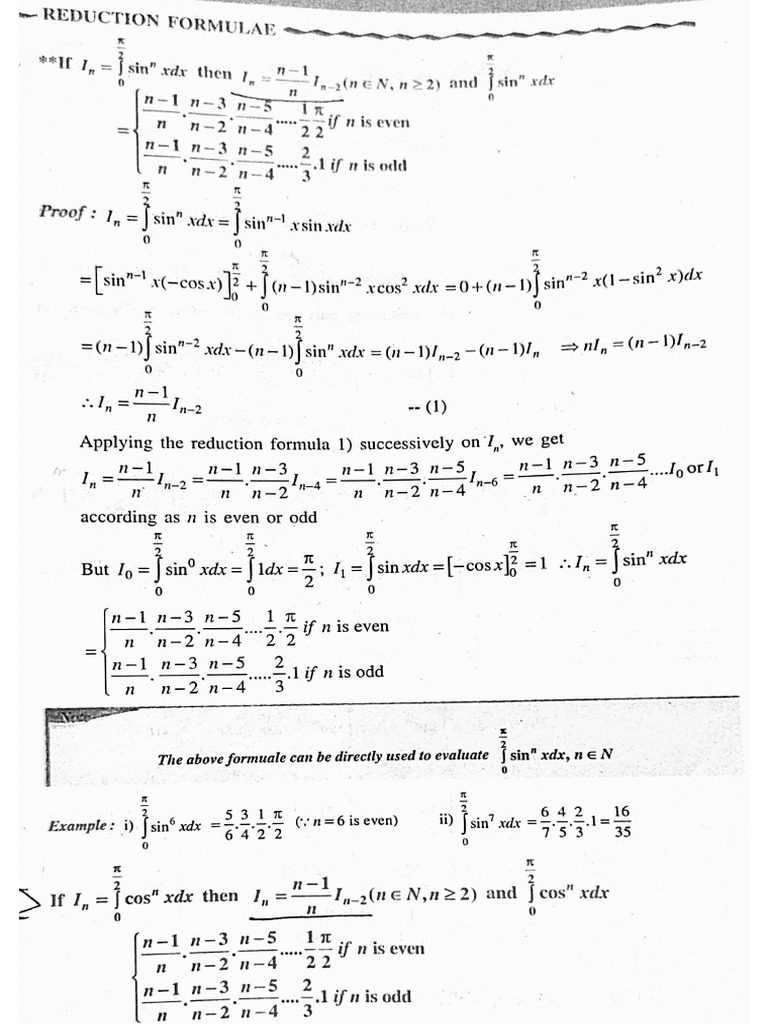 REDUCTION FORMULAE
**If Iₙ = ∫₀^(π/2) sinⁿ xdx then Iₙ = (n−1)/n Iₙ₋₂ (n ∈ N, n ≥ 2) and ∫₀^(π/2) sinⁿ xdx
= { (n−1)/n . (n−3)/(n−2) . (n−5)/(n−4) ..... 1/2 π/2 if n is even
(n−1)/n . (n−3)/(n−2) . (n−5)/(n−4) ..... 2/3 .1 if n is odd
Proof : Iₙ = ∫₀^(π/2) sinⁿ xdx = ∫₀^(π/2) sinⁿ⁻¹ x sin xdx
= [sinⁿ⁻¹ x(−cos x)]₀^(π/2) + ∫₀^(π/2) (n−1) sinⁿ⁻² x cos² xdx = 0 + (n−1) ∫₀^(π/2) sinⁿ⁻² x(1−sin² x)dx
= (n−1) ∫₀^(π/2) sinⁿ⁻² xdx − (n−1) ∫₀^(π/2) sinⁿ xdx = (n−1)Iₙ₋₂ − (n−1)Iₙ ⇒ nIₙ = (n−1)Iₙ₋₂
∴ Iₙ = (n−1)/n Iₙ₋₂ -- (1)
Applying the reduction formula 1) successively on Iₙ, we get
Iₙ = (n−1)/n Iₙ₋₂ = (n−1)/n . (n−3)/(n−2) Iₙ₋₄ = (n−1)/n . (n−3)/(n−2) . (n−5)/(n−4) Iₙ₋₆ = (n−1)/n . (n−3)/(n−2) . (n−5)/(n−4) .... I₀ or I₁
according as n is even or odd
But I₀ = ∫₀^(π/2) sin⁰ xdx = ∫₀^(π/2) 1dx = π/2 ; I₁ = ∫₀^(π/2) sin xdx = [−cos x]₀^(π/2) = 1 ∴ Iₙ = ∫₀^(π/2) sinⁿ xdx
= { (n−1)/n . (n−3)/(n−2) . (n−5)/(n−4) .... 1/2 . π/2 if n is even
(n−1)/n . (n−3)/(n−2) . (n−5)/(n−4) ..... 2/3 .1 if n is odd
Note
The above formuale can be directly used to evaluate ∫₀^(π/2) sinⁿ xdx, n ∈ N
Example : i) ∫₀^(π/2) sin⁶ xdx = 5/6 . 3/4 . 1/2 . π/2 (∵ n = 6 is even) ii) ∫₀^(π/2) sin⁷ xdx = 6/7 . 4/5 . 2/3 .1 = 16/35
If Iₙ = ∫₀^(π/2) cosⁿ xdx then Iₙ = (n−1)/n Iₙ₋₂ (n ∈ N, n ≥ 2) and ∫₀^(π/2) cosⁿ xdx
{ (n−1)/n . (n−3)/(n−2) . (n−5)/(n−4) ..... 1/2 π/2 if n is even
(n−1)/n . (n−3)/(n−2) . (n−5)/(n−4) .... 2/3 .1 if n is odd